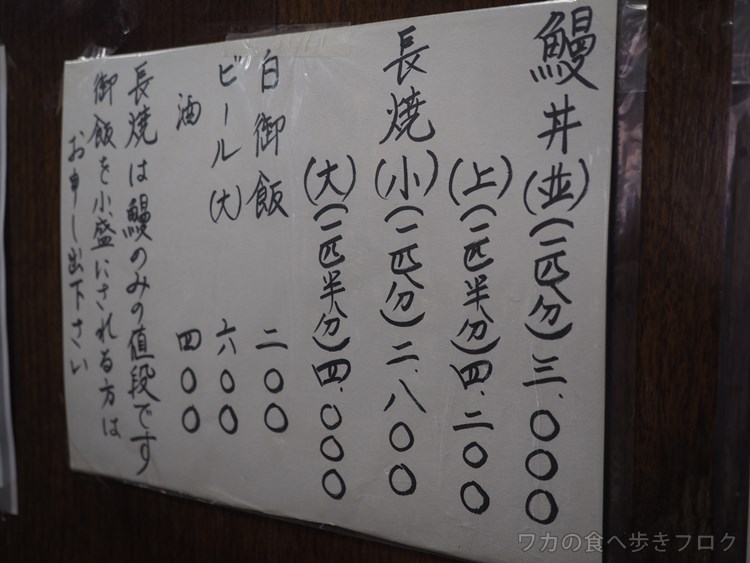 鰻丼(並)(一匹分)三.〇〇〇
(上)(一匹半分)四.二〇〇
長焼(小)(一匹分)二.八〇〇
(大)(一匹半分)四.〇〇〇
白御飯 二〇〇
ビール(大) 六〇〇
酒 四〇〇
長焼は鰻のみの値段です
御飯を小盛にされる方は
お申し出下さい
ワカの食べ歩きブログ